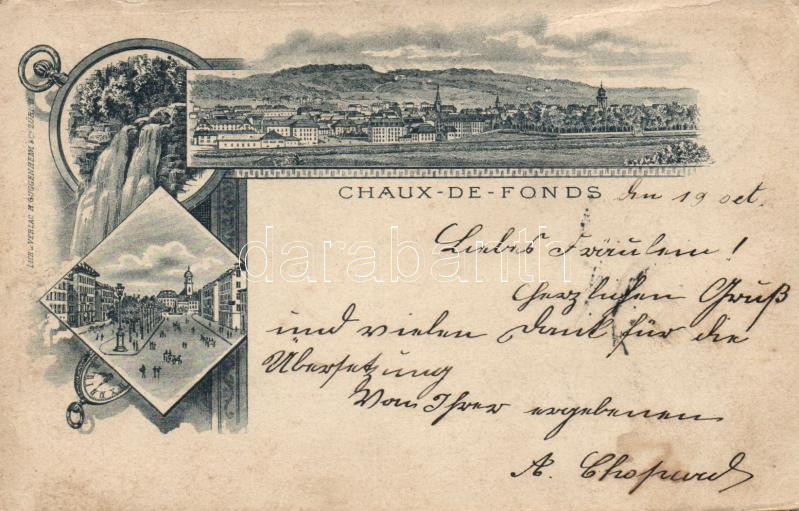 CHAUX-DE-FONDS den 19 oct.
Liebes Fräulein!
Herzlichen Gruß
und vielen Dank für die
Übersetzung
Von Ihrer ergebenen
A. Chopard
LITH. VERLAG H. GUGGENHEIM & Co. ZÜRICH
darabanth